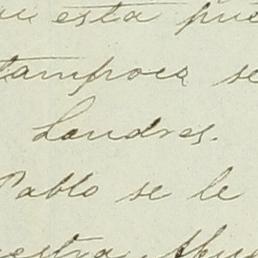 esta pue
tampoco se
Londres.
Pablo se le
estra